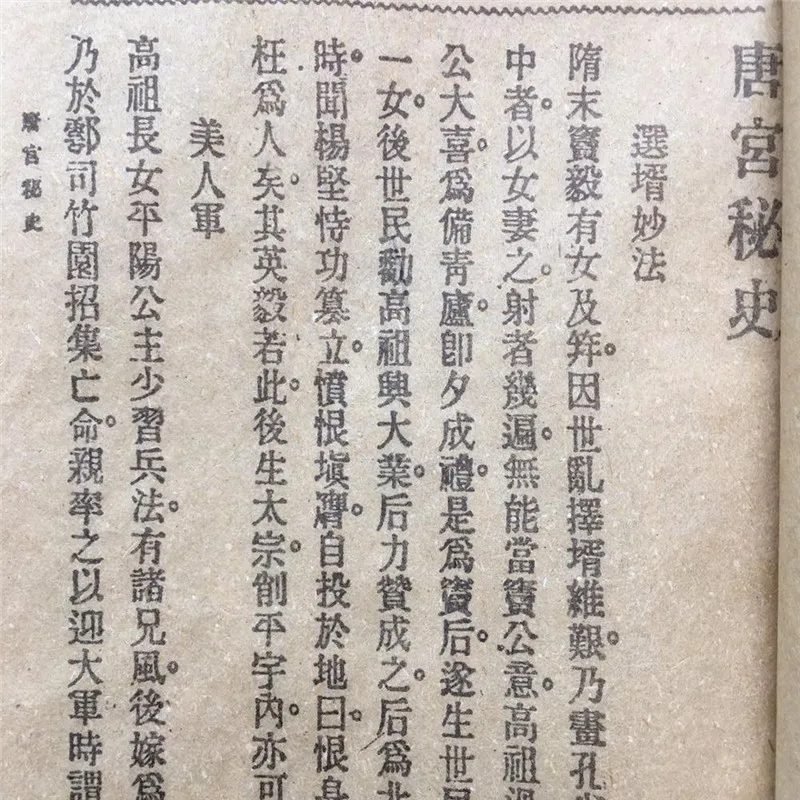 唐宮秘史
選壻妙法
隋末竇毅有女及笄。因世亂擇壻維艱。乃畫孔
中者。以女妻之。射者幾遍。無能當竇公意。高祖
公大喜。爲備靑廬。卽夕成禮。是爲竇后。遂生世
一女。後世民勸高祖興大業。后力贊成之。后爲
時。聞楊堅恃功篡立。憤恨塡膺。自投於地。曰恨
枉爲人矣。其英毅若此。後生太宗。削平宇內。亦可
美人軍
高祖長女平陽公主少習兵法。有諸兄風。後嫁爲
乃於鄠司竹園招集亡命。親率之以迎大軍時謂
唐宮秘史